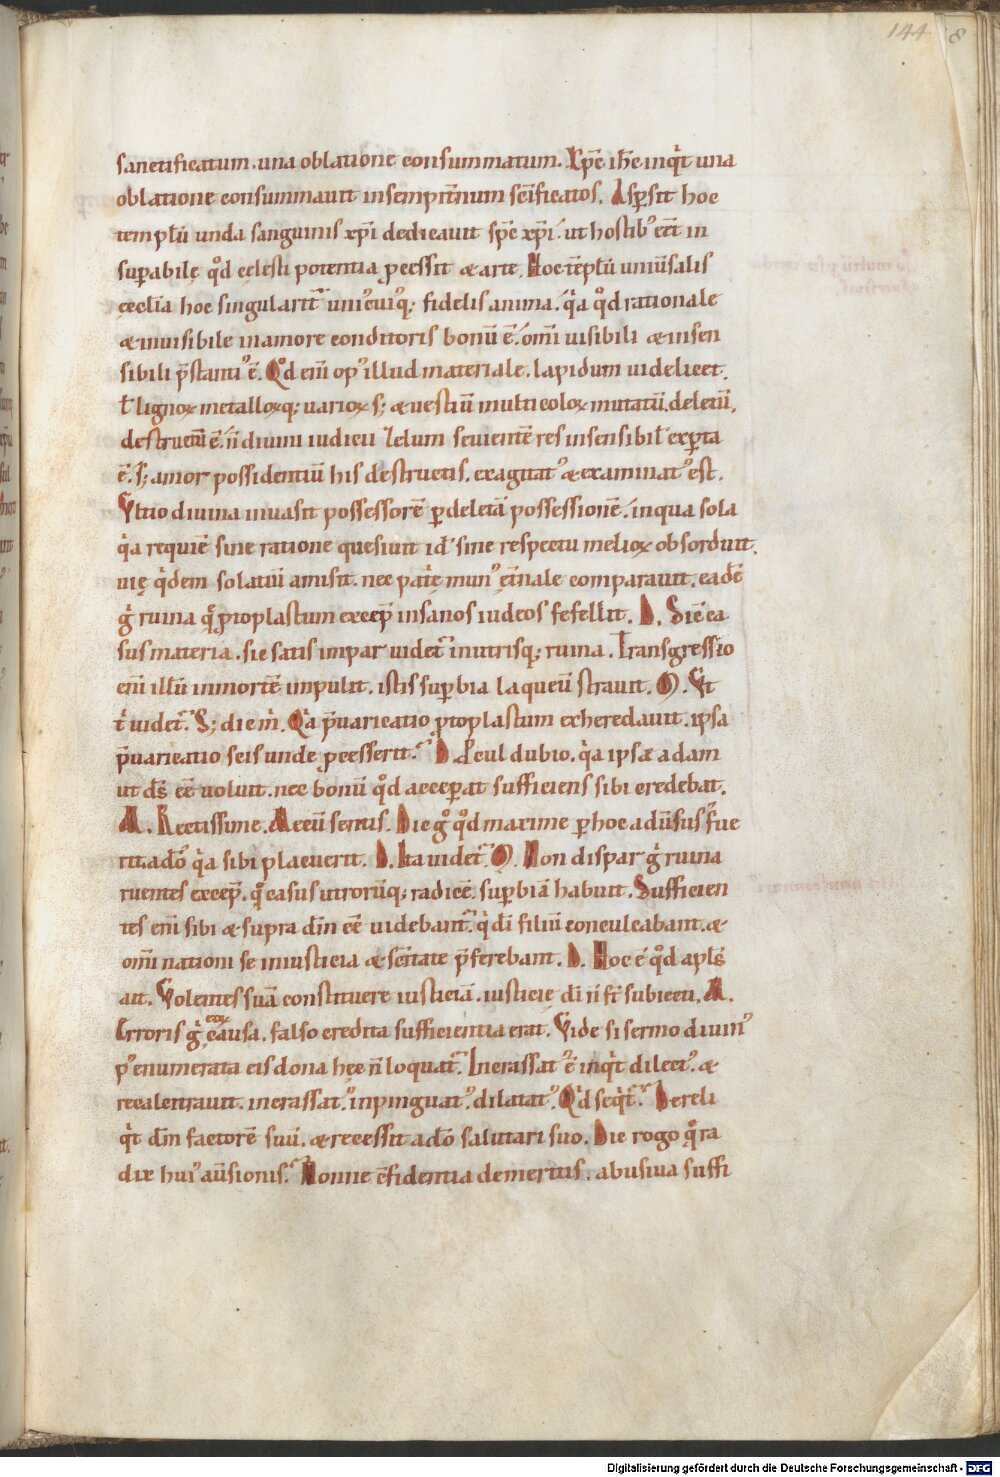 144 8
sanctificatum. una oblatione consummatum. Xpc ihc inqͥt una
oblatione consummauit in sempit̄num scīficatos. Asꝑsit hoc
templū unda sanguinis xpi dedicauit spc xpi. ut hostibꝰ eēt in
suꝑabilę qͦd cęlesti potentia ꝓcessit & arte. Hoc tēplū uniūsalis
ęccl̄ia hoc singularit̄ uniꝰcuiꝰqꝫ fidelis anima. qͥa qͦd rationale
& inuisibile in amore conditoris bonū ē. om̄i uisibili & insen
sibili p̄stantiꝰ ē. Qͦd em̄ opꝰ illud materiale. lapidum uidelicet.
ł lignoꝝ metalloꝝqꝫ uarioꝝ sꝫ & uestiū multicoloꝝ mutatū. deletū.
destructū ē. n̄ diuini iudicii zelum seuientē res insensibił exꝑta
ē. sꝫ amor possidentiū his destructis. exagitatꝰ & examinatꝰ est.
Vltio diuina inuasit possessorē ꝑ deletā possessionē. in qua sola
qͥa requiē sine ratione quesiuit id sine respectu melioꝝ obsorduit.
uię qͥdem solatiū amisit. nec patͥę munꝰ et̄nale comparauit. eadē
gͥ ruina qͣ ꝓtoplastum excep̄ insanos iudeos fefellit. D. Sic̄ ca
sus materia. sic satis impar uidet̄ in utrisqꝫ ruina. Transgressio
eni illū in mortē impulit. istis suꝑbia laqueū strauit. M. Vt
tͥ uidet̄. Sꝫ dic mͥ. Qͥa p̄uaricatio ꝓtoplastum exheredauit. ipsa
p̄uaricatio scis unde ꝓcesserit. D. Procul dubio. qͥa ipsæ adam
ut ds̄ eē uoluit. nec bonū qͦd acceꝑat sufficiens sibi credebat.
M. Rectissime. Mecū sentis. Dic gͦ qͦd maxime ꝑ hoc adūsus fue
rit. adō qͥa sibi placuerit. D. Ita uidet̄. M. Non dispar gͥ ruina
ruentes excep̄. qͣ casus utrorūqꝫ radicē. suꝑbiā habuit. Sufficien
tes eni sibi & supra dm̄ eē uidebant̄. qͥ di filiū conculcabant. &
om̄i nationi se in iusticia & sc̄itate p̄ferebant. D. Hoc ē qͦd apl̄s
ait. Volentes suā constituere iusticiā. iusticię di n̄ st̄ subiecti. M.
Erroris gͥ eoꝝ causa. falso credita sufficientia erat. Vide si sermo diuinꝰ
pꝰ enumerata eis dona hęc n̄ loquat̄. Incrassatꝰ ē inqͥt dilectꝰ. &
recalcitrauit. incrassatꝰ. inpinguatꝰ. dilatatꝰ. Qͥd seqͥt̄. Dereli
qͥt dm̄ factorē suū. & recessit a dō salutari suo. Dic rogo qͣ ra
dix huiꝰ aūsionis. Nonne c̄fidentia de meritis. abusiua suffi
Digitalisierung gefördert durch die Deutsche Forschungsgemeinschaft - DFG